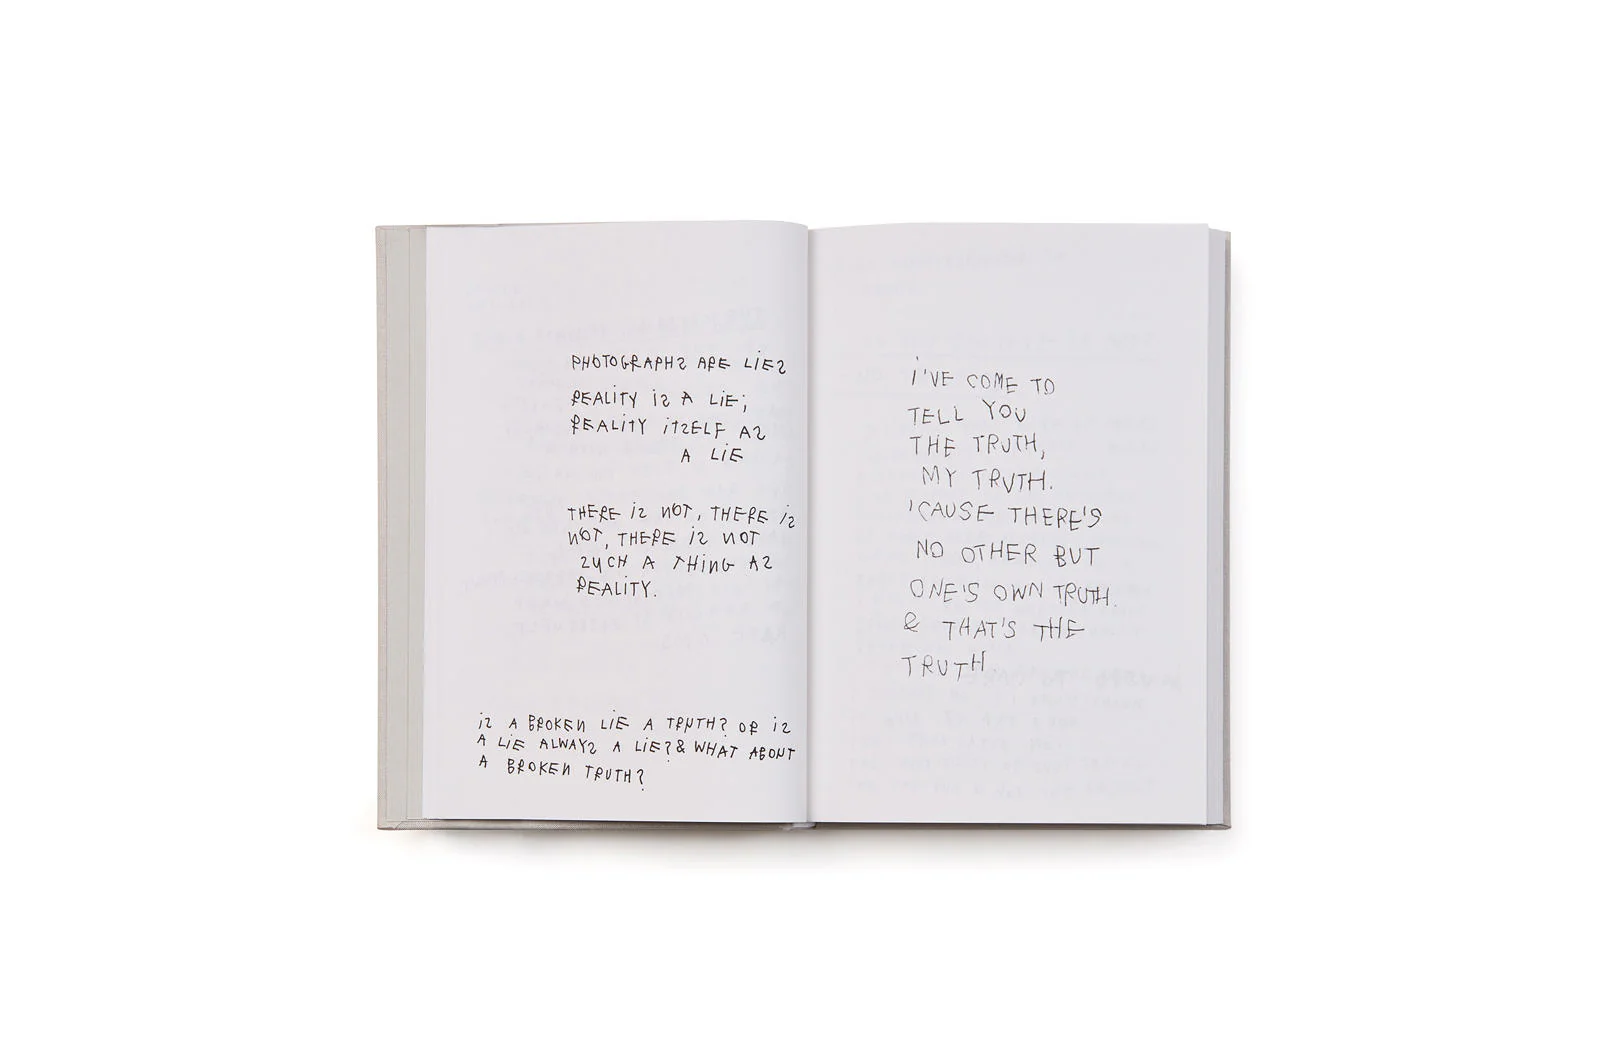 PHOTOGRAPHS ARE LIES
REALITY iS A LiE;
REALiTY iTSELF AS
A LiE
THERE iS NOT, THERE iS
NOT, THERE iS NOT
SUCH A THiNG AS
REALiTY.
iS A BROKEN LiE A TRUTH? OR iS
A LiE ALWAYS A LiE? & WHAT ABOUT
A BROKEN TRUTH?
i'VE COME TO
TELL YOU
THE TRUTH,
MY TRUTH.
'CAUSE THERE'S
NO OTHER BUT
ONE'S OWN TRUTH.
& THAT'S THE
TRUTH.